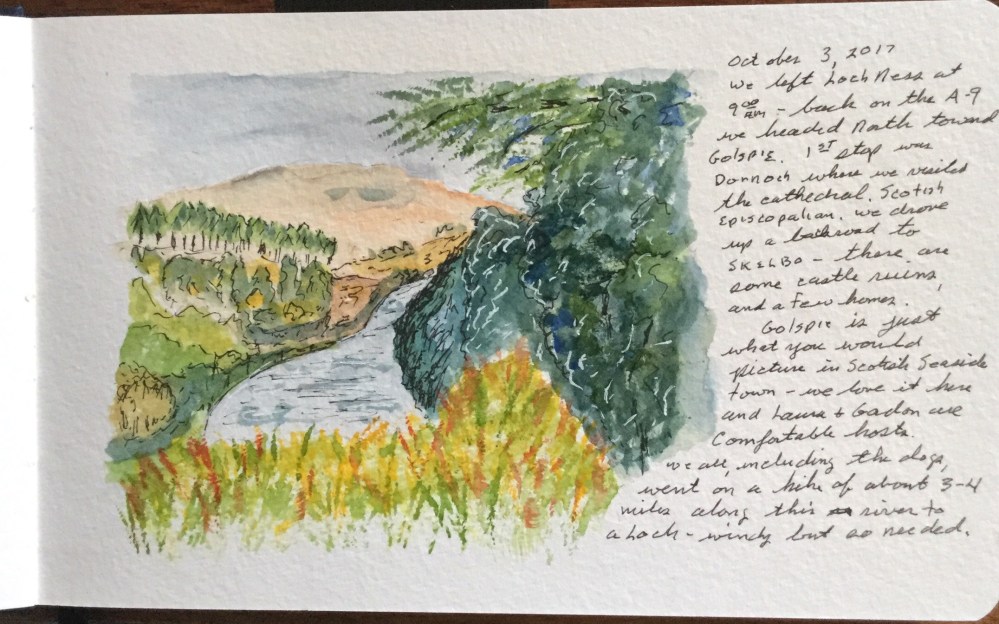 October 3, 2017
we left Loch Ness at
9:00 AM - back on the A-9
we headed North toward
Golspie. 1ST stop was
Dornoch where we visited
the cathedral. Scotish
Episcopalian. we drove
up a backroad to
SKELBO - there are
some castle ruins,
and a few homes.
Golspie is just
what you would
picture in Scotish Seaside
town - we love it here
and Laura + Gordon are
Comfortable hosts.
we all, including the dogs,
went on a hike of about 3-4
miles along this river to
a Loch - windy but so needed.